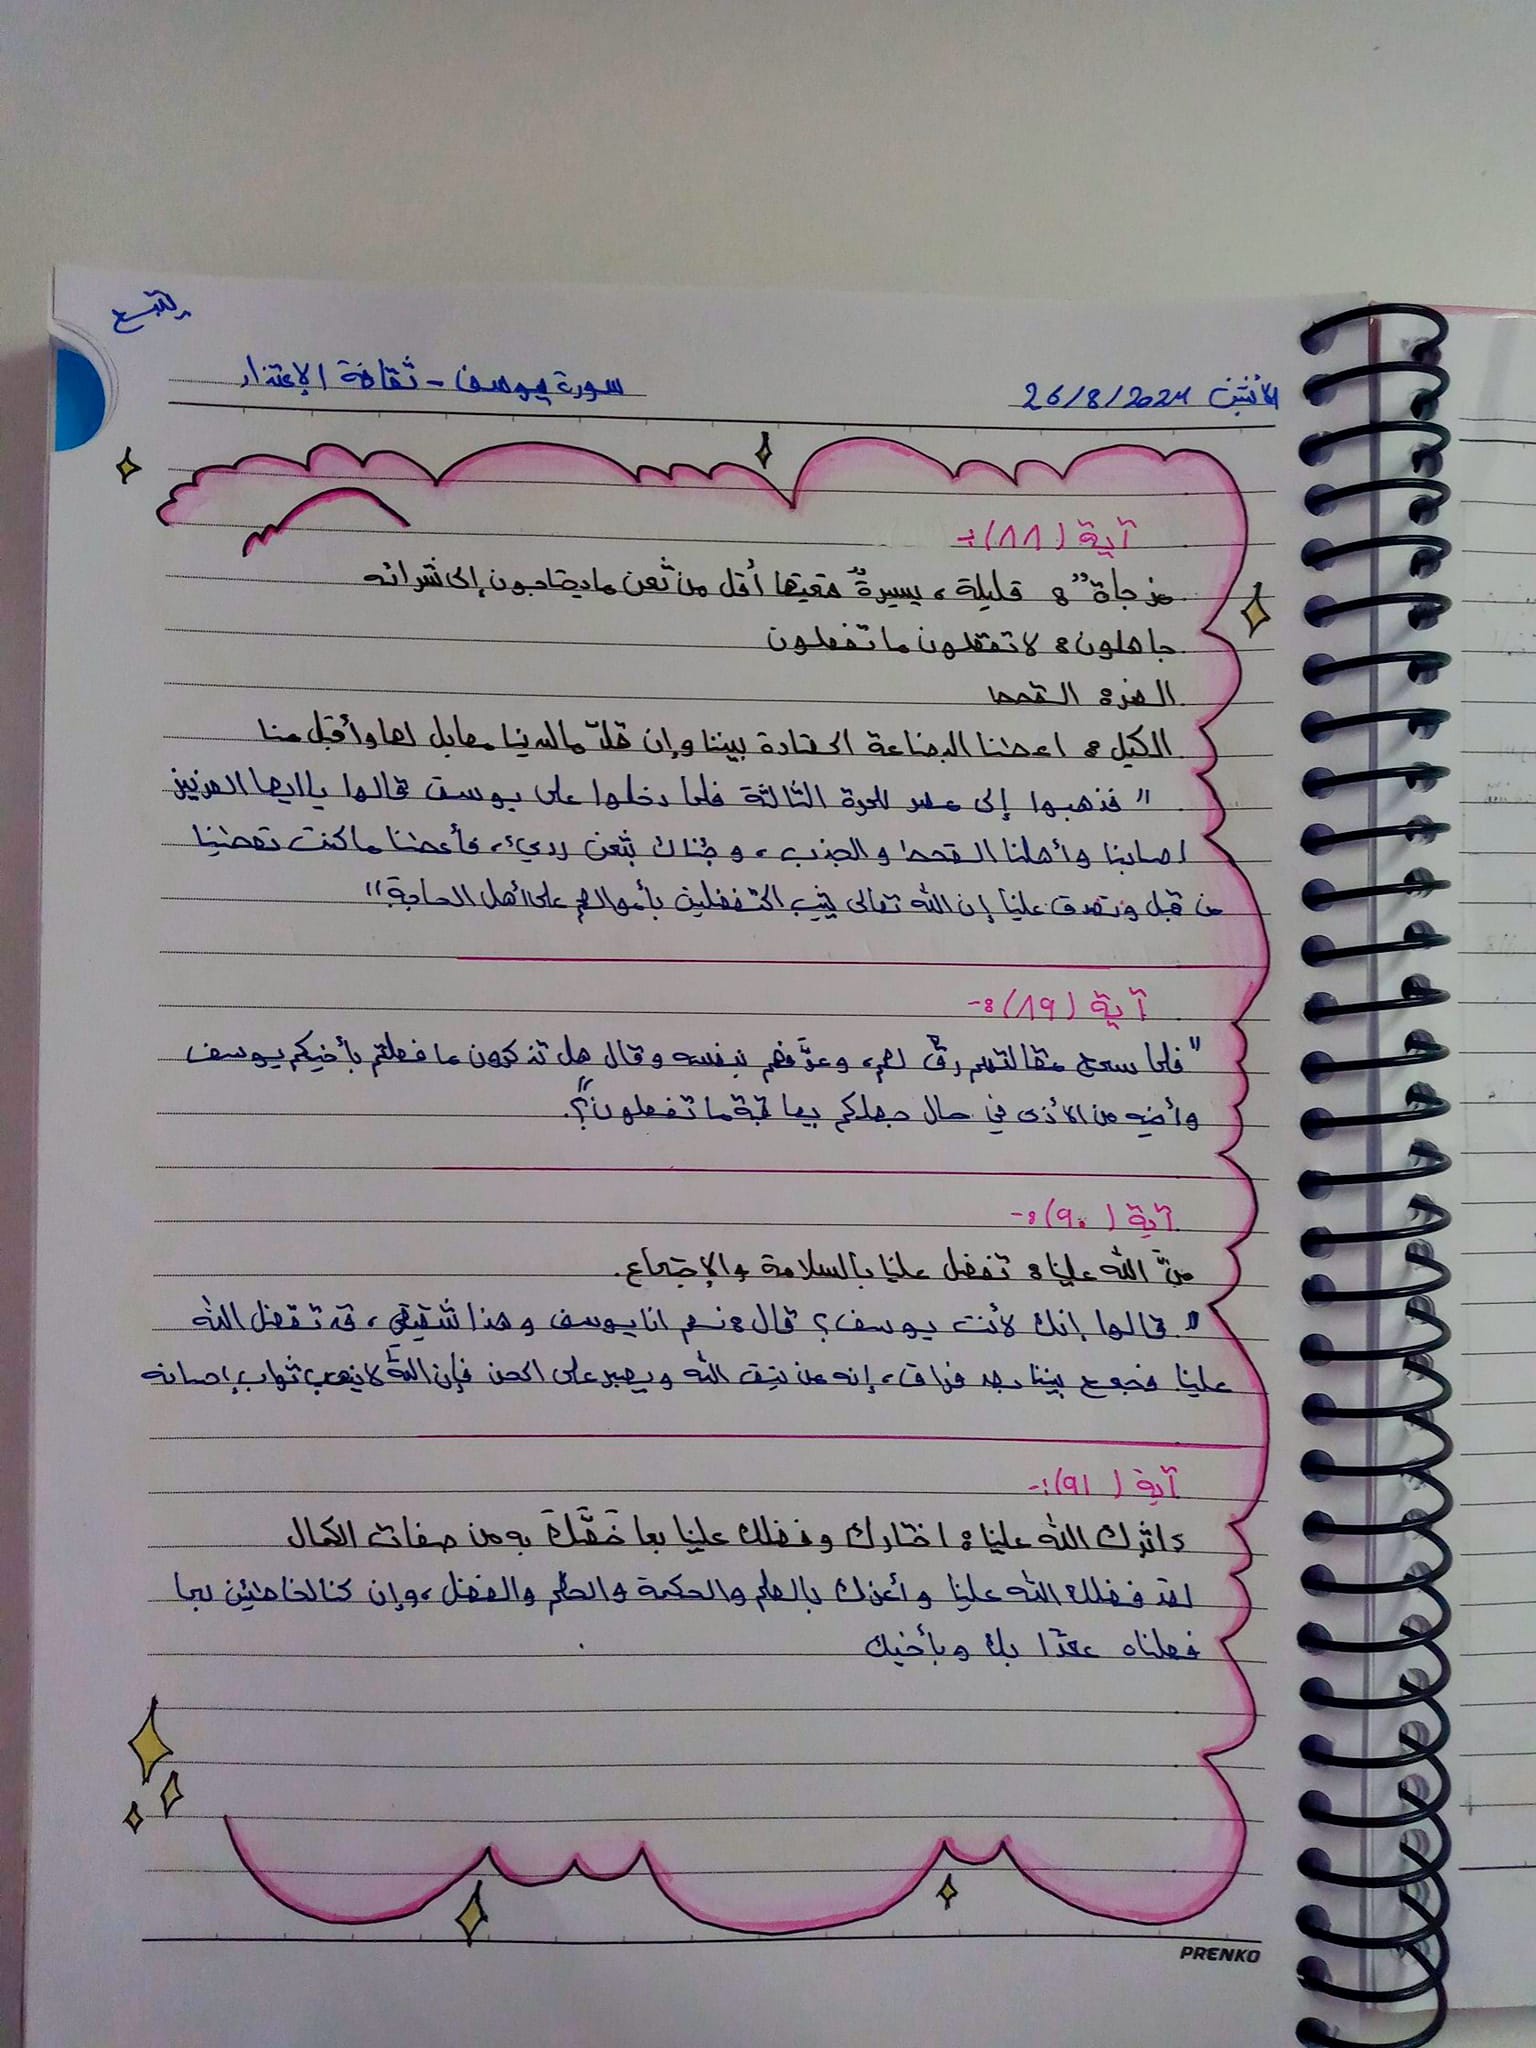 يتبع
الأثنين 26/8/2024
سورة يوسف - ثقافة الإعتذار
آية (٨٨):-
مزجاة": قليلة، يسيرةٌ قيمتها أقل من ثمن ما يحتاجون إلى شرائه
جاهلون: لا تعقلون ما تفعلون
الضر: القحط
الكيل: اعطنا البضاعة المعتادة بيننا وإن قلّ ما لدينا مقابل لها وأقبل منا
" فذهبوا إلى مصر للمرة الثالثة فلما دخلوا على يوسف قالوا يا ايها العزيز
اصابنا وأهلنا القحط والجذب، وجئناك بثمن رديء، فأعطنا ما كنت تعطينا
من قبل وتصدق علينا إن الله تعالى يثيب المتفضلين بأموالهم على أهل الحاجة"
آية (٨٩):-
"فلما سمع مقالتهم رقَّ لهم، وعرَّفهم بنفسه وقال هل تذكرون ما فعلتم بأخيكم يوسف
وأخيه من الأذى في حال جهلكم بعاقبة ما تفعلون"؟.
آية (٩٠):-
منَّ الله علينا: تفضل علينا بالسلامة والإجتماع.
" قالوا إنك لأنت يوسف؟ قال: نعم انا يوسف وهذا شقيقي، قد تفضل الله
علينا فجمع بيننا بعد فراق، إنه من يتق الله ويصبر على المحن فإن الله لا يذهب ثواب إحسانه
آية (٩١):-
ءاثرك الله علينا: اختارك وفضلك علينا بما خصَّكَ به من صفات الكمال
لقد فضلك الله علينا وأعزك بالعلم والحكمة والحلم والفضل، وإن كنا لخاطئين بما
فعلناه عمدًا بك وبأخيك
PRENKO